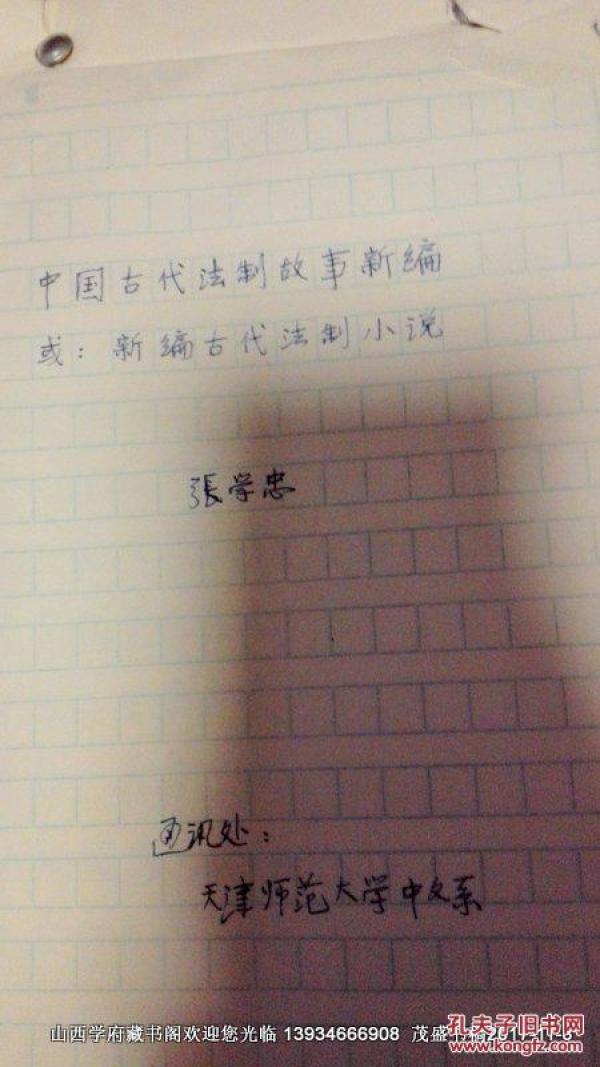 中国古代法制故事新编
或：新编古代法制小说
張学忠
通讯处：
天津师范大学中文系
孔夫子旧书网
www.kongfz.com
山西学府藏书阁欢迎您光临 13934666908 茂盛书稿